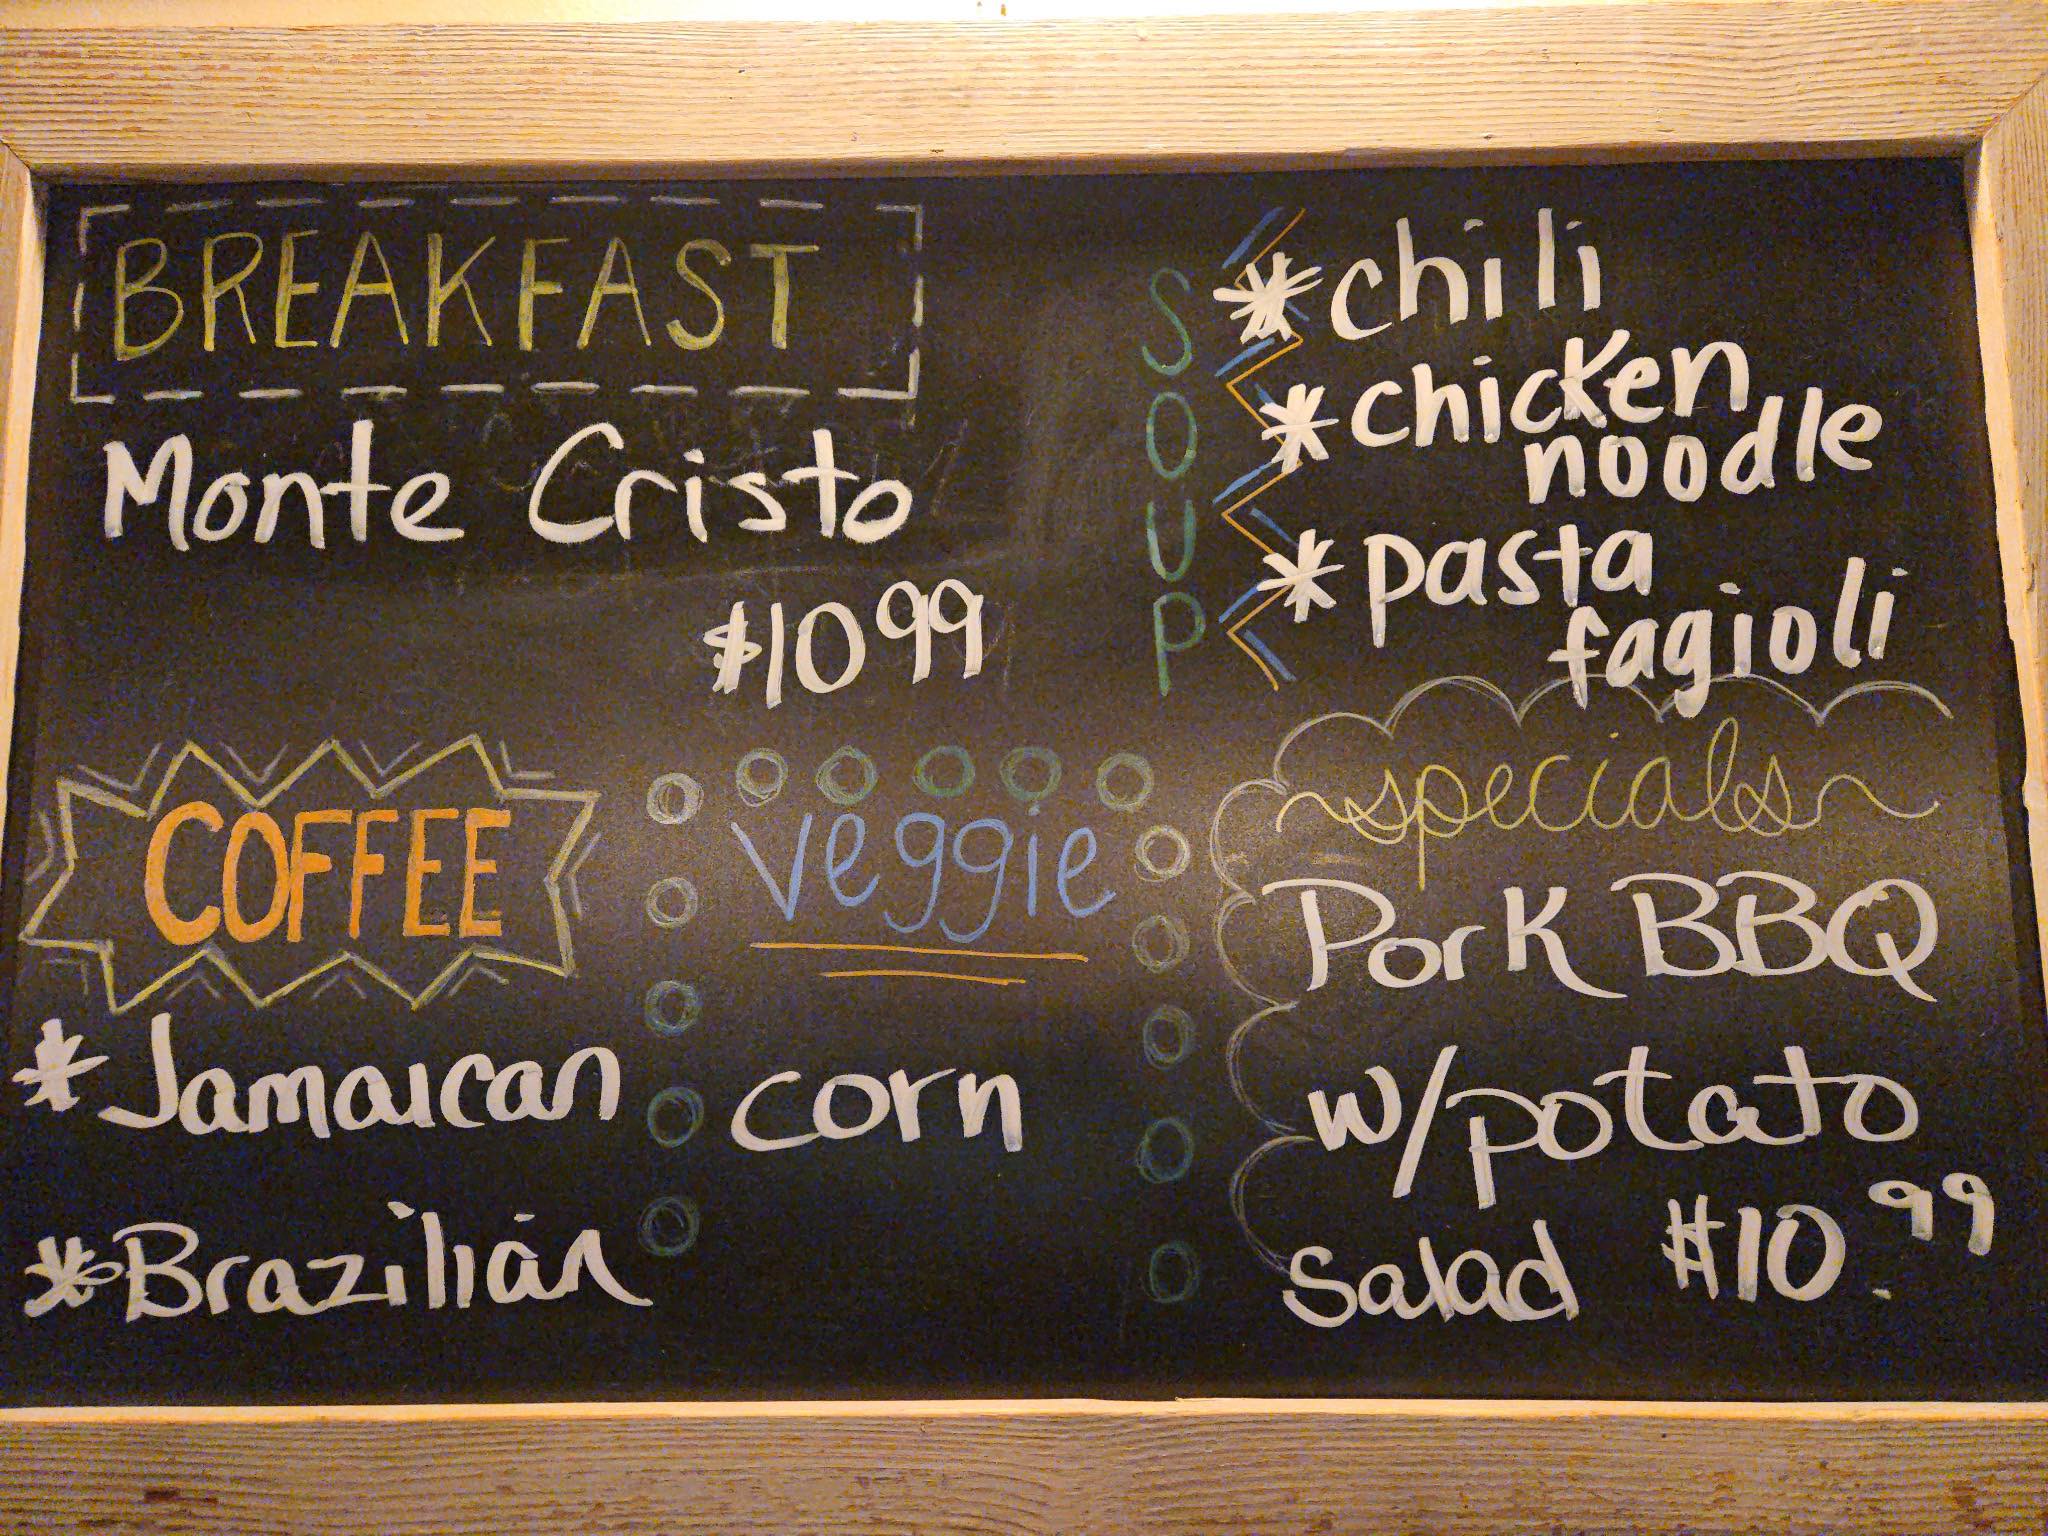 BREAKFAST
Monte Cristo
$10 99
SOUP
*chili
*chicken
noodle
*pasta
fagioli
COFFEE
*Jamaican
*Brazilian
veggie
corn
~specials~
Pork BBQ
w/potato
Salad $10.99